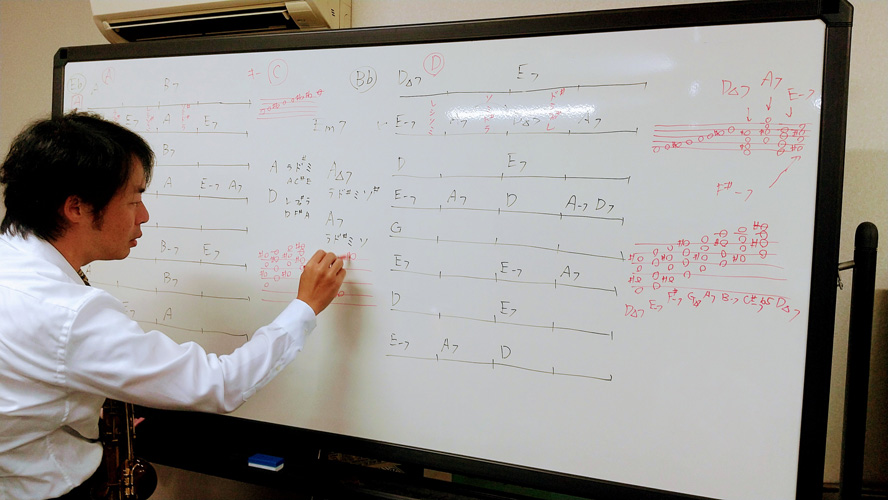 Eb
B7
E7 A E7
B7
A E-7 A7
B-7 E7
B7
A
キー C
Bb
2m7
A ラド#ミ
A C# E
D レファ#ラ
D F# A
A△7
ラド#ミソ#
A7
ラド#ミソ
D
D△7 E7
E-7 A7 D△7 A7
D E7
E-7 A7 D A-7 D7
G
E7 E-7 A7
D E7
E-7 A7 D
D△7 A7 E-7
F#-7
D△7 E-7 F#-7 G△7 A7 B-7 C#-7b5 D△7